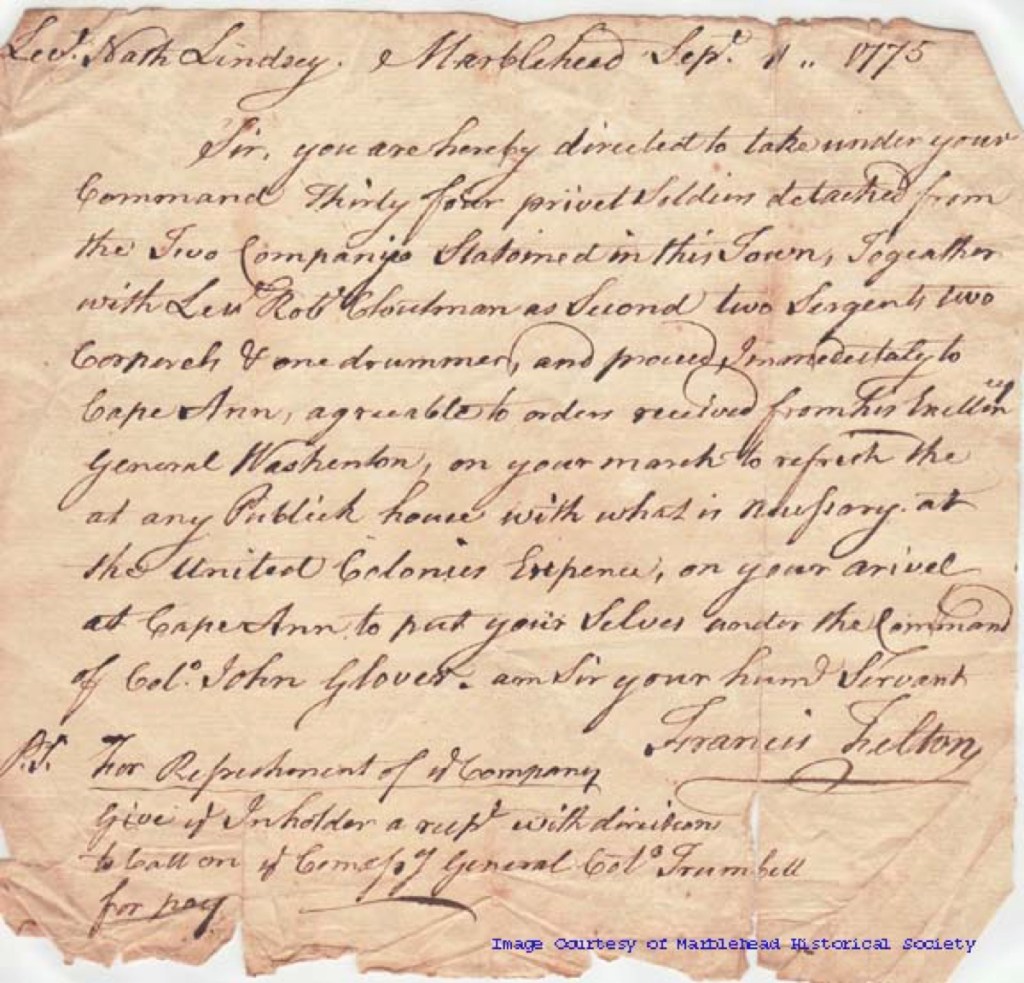 Leut. Nath Lindsey. Marblehead Sept. 1 .. 1775
Sir, you are hereby directed to take under your
Command Thirty four privet Soldiers detached from
the Two Companys Stationed in this Town, Togeather
with Leut Robt Cloutman as Second two Sergents two
Corperels & one drummer, and proceed Immedeetaly to
Cape Ann, agreeable to orders received from his Exellency
General Washenton, on your march to refresh the
at any Publick house with what is Nessessary at
the United Colonies Expence, on your arivel
at Cape Ann to put your Selves under the Command
of Colo. John Glover. am Sir your humd Servant
Francis Felton
P.S. For Refreshment of ye Company
Give ye Inholder a recpt with directions
to Call on ye General Colo Trumbell
for pay
Image Courtesy of Marblehead Historical Society